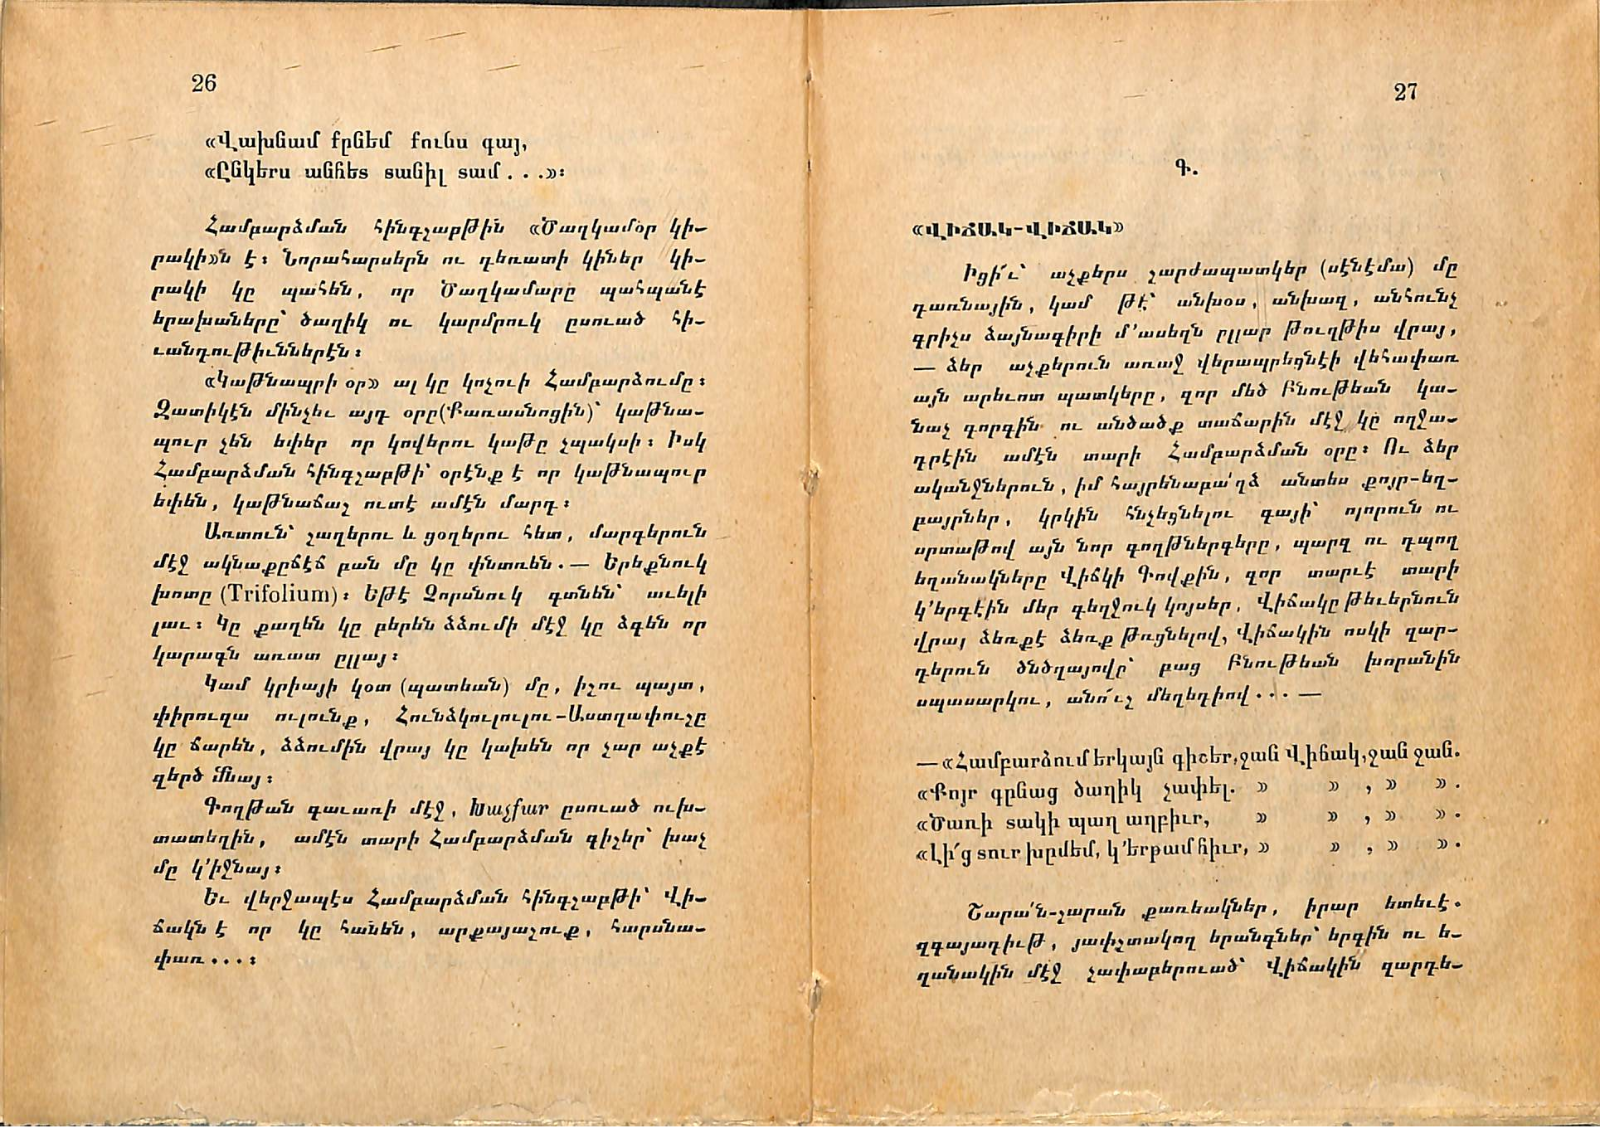 26
«Վախնամ քընեմ քունս գայ,
«Ընկերս անհետ տանիլ տամ . . .»։
Համբարձման հինգշաբթին «Ծաղկամօր կի-
րակի»ն է։ Նորահարսերն ու դեռատի կիներ կի-
րակի կը պահեն, որ Ծաղկամարը պահպանէ
երախաները՝ ծաղիկ ու կարմրուկ ըսուած հի-
ւանդութիւններէն։
«Կաթնապրի օր» ալ կը կոչուի Համբարձումը։
Զատիկէն մինչեւ այդ օրը(Քառասնոցին)՝ կաթնա-
պուր չեն եփեր որ կովերու կաթը չպակսի։ Իսկ
Համբարձման հինգշաբթի՝ օրէնք է որ կաթնապուր
եփեն, կաթնաճաշ ուտէ ամէն մարդ։
Առտուն՝ շաղերու և ցօղերու հետ, մարգերուն
մէջ ակնաքըճէճ բան մը կը փնտռեն.— Երեքնուկ
խոտը (Trifolium)։ Եթէ Չորսնուկ գտնեն՝ աւելի
լաւ։ Կը քաղեն կը բերեն ձձումի մէջ կը ձգեն որ
կարագն առատ ըլլայ։
Կամ կրիայի կօտ (պատեան) մը, իշու պայտ,
փիրուզա ուլունք, Հունձկուլուլու-Աստղափուշը
կը ճարեն, ձձումին վրայ կը կախեն որ չար աչքէ
զերծ մնայ։
Գողթան գաւառի մէջ, Խաչքար ըսուած ուխ-
տատեղին, ամէն տարի Համբարձման գիշեր՝ խաչ
մը կ՚իջնայ։
Եւ վերջապէս Համբարձման հինգշաբթի՝ Վի-
ճակն է որ կը հանեն, արքայաշուք, հարսնա-
փառ...։
27
Գ.
«ՎԻՃԱԿ-ՎԻՃԱԿ»
Իցի՜ւ՝ աչքերս շարժապատկեր (սէնէմա) մը
դառնային, կամ թէ՝ անխօս, անխազ, անհունչ
գրիչս ձայնագիրի մ՚ասեղն ըլլար թուղթիս վրայ,
— ձեր աչքերուն առաջ վերապրեցնէի վեհափառ
այն արեւոտ պատկերը, զոր մեծ Բնութեան կա-
նաչ գորգին ու անծածք տաճարին մէջ կը ողջա-
դրէին ամէն տարի Համբարձման օրը։ Ու ձեր
ականջներուն, իմ հայրենաբա՛ղձ անտես քոյր-եղ-
բայրներ, կրկին հնչեցնելու գայի՝ ոլորուն ու
սրտաթով այն նոր գողթներգերը, պարզ ու դպող
եղանակները Վիճկի Գովքին, զոր տարւէ տարի
կ՚երգէին մեր գեղջուկ կոյսեր, Վիճակը թեւերնուն
վրայ ձեռքէ ձեռք թռցնելով, Վիճակին ոսկի զար-
դերուն ծնծղայովը՝ բաց Բնութեան խորանին
սպասարկու, անո՜ւշ մեղեդիով... —
—«Համբարձում երկայն գիշեր, ջան Վիճակ, ջան ջան.
«Քոյր գընաց ծաղիկ չափել. » » , » ».
«Ծառի տակի պաղ աղբիւր, » » , » ».
«Լի՜ց տուր խըմեմ, կ՚երթամ հիւր, » » , » ».
Շարա՛ն-շարան քառեակներ, իրար ետեւէ.
զգայագիւթ, յափշտակող երանգներ՝ երգին ու ե-
ղանակին մէջ չափաբերուած՝ Վիճակին զարդե-